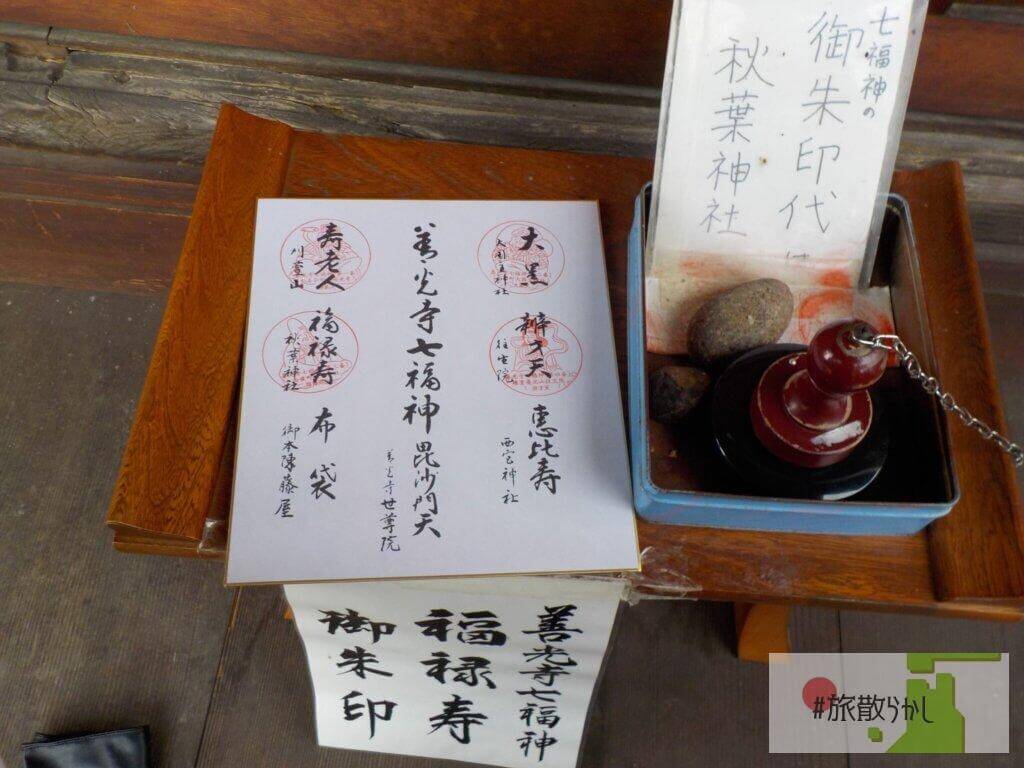 七福神の
御朱印代は
秋葉神社
大黒
大国主神社
辨才天
往生院
恵比寿
西宮神社
善光寺七福神
毘沙門天
善光寺世尊院
寿老人
刈萱山
福禄寿
秋葉神社
布袋
御本陳藤屋
善光寺七福神
福禄寿
御朱印
#旅散らかし